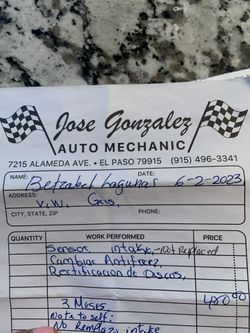 Jose Gonzalez
AUTO MECHANIC
7215 ALAMEDA AVE. • EL PASO 79915 (915) 496-3341
NAME: Betzabel Lagunas DATE: 6-2-2023
ADDRESS: V.W.
CITY, STATE, ZIP PHONE:
QUANTITY WORK PERFORMED PRICE
Sensor intake, not Replaced
Cambiar Antifreez
Rectificacion de Discos,
3 Meses
Note to self:
No Remplazo intake